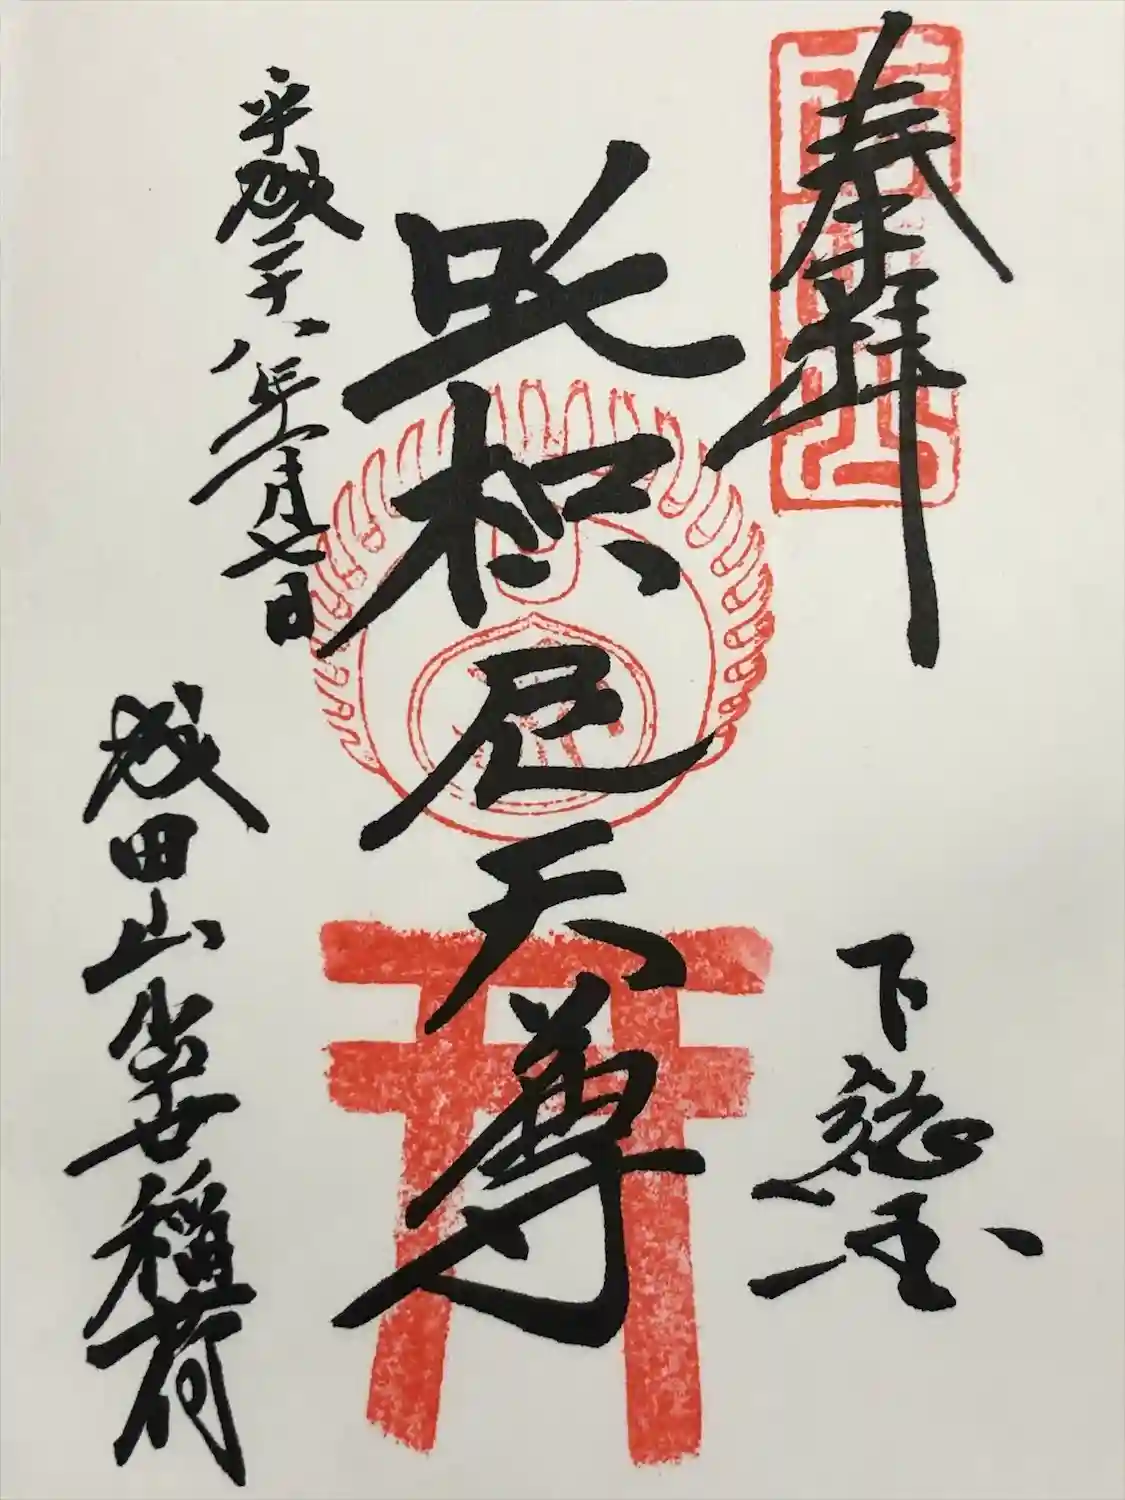 奉拝
下総国
吒枳尼天尊
平成二十八年二月七日
成田山出世稲荷